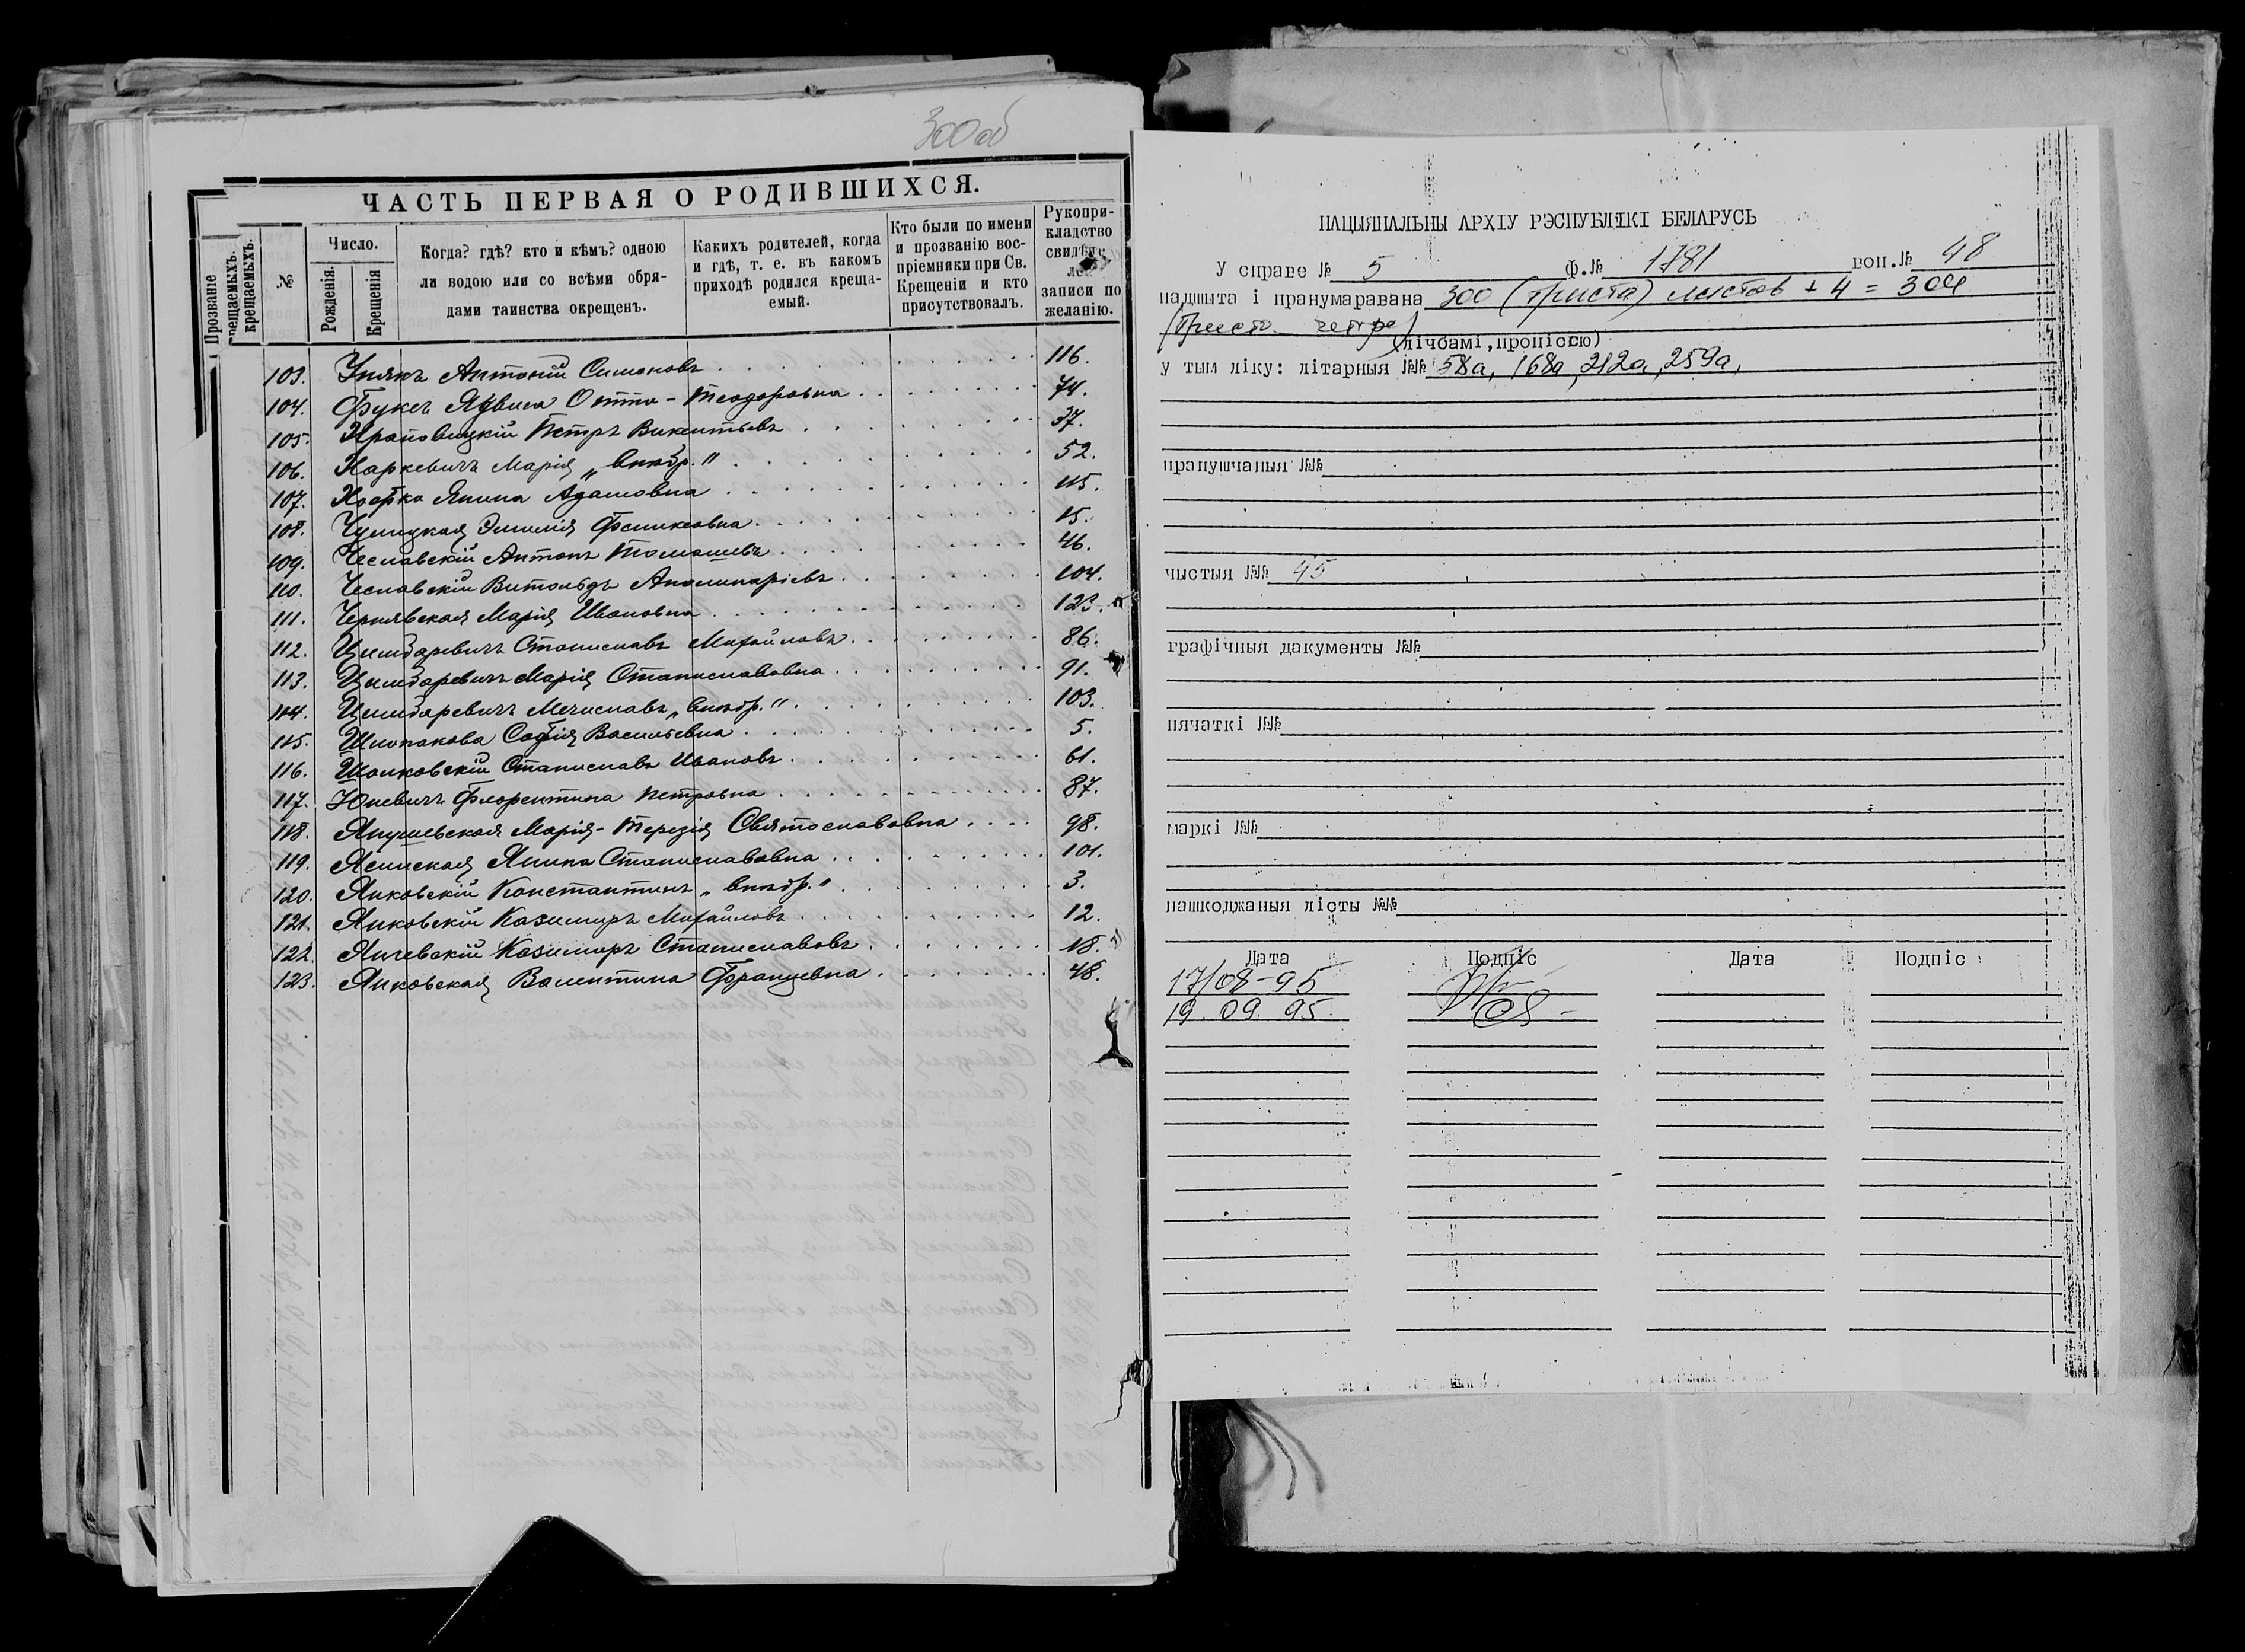 300 об
ЧАСТЬ ПЕРВАЯ О РОДИВШИХСЯ.
Прозваніе крещаемыхъ.
№
Число.
Рожденія.
Крещенія
Когда? гдѣ? кто и кѣмъ? одною
ли водою или со всѣми обря-
дами таинства окрещенъ.
Какихъ родителей, когда
и гдѣ, т. е. въ какомъ
приходѣ родился креща-
емый.
Кто были по имени
и прозванію вос-
пріемники при Св.
Крещеніи и кто
присутствовалъ.
Рукопри-
кладство
свидѣте
записи по
желанію.
103. Антоній Симоновъ 116.
104. Фуксъ Ядвига Отто-Теодоровна 74.
105. Храповицкій Петръ Викентьевъ 37.
106. Харкевичъ Марія „внѣбр." 52.
107. Янина Адамовна 115.
108. Эмилія Феликсовна 15.
109. Чеславскій Антонъ Томашевъ 46.
110. Чеславскій Витольдъ Аполинаріевъ 104.
111. Чернявская Марія Ивановна 123.
112. Цимбаревичъ Станиславъ Михайловъ 86.
113. Цимбаревичъ Марія Станиславовна 91.
114. Цимбаревичъ Мечиславъ „внѣбр." 103.
115. Шлопакова Софія Васильевна 5.
116. Шолковскій Станиславъ Ивановъ 61.
117. Юневичъ Флорентина Петровна 87.
118. Янушевская Марія-Терезія Святославовна 98.
119. Ясинская Янина Станиславовна 101.
120. Янковскій Константинъ „внѣбр." 3.
121. Янковскій Казимиръ Михайловъ 12.
122. Янчевскій Казимиръ Станиславовъ 18.
123. Янковская Валентина Францевна 48.
НАЦЫЯНАЛЬНЫ АРХІУ РЭСПУБЛІКІ БЕЛАРУСЬ
У справе № 5 ф.№ 1781 воп.№ 48
падшыта і пранумаравана 300 (триста) листов + 4 = 304
(триста четре)
(лічбамі, пропіссю)
у тым ліку: літарныя №№ 58а, 168а, 212а, 259а,
прапушчаныя №№
чыстыя №№ 45
графічныя дакументы №№
пячаткі №№
маркі №№
пашкоджаныя лісты №№
Дата Подпіс Дата Подпіс
17/08-95
19.09.95